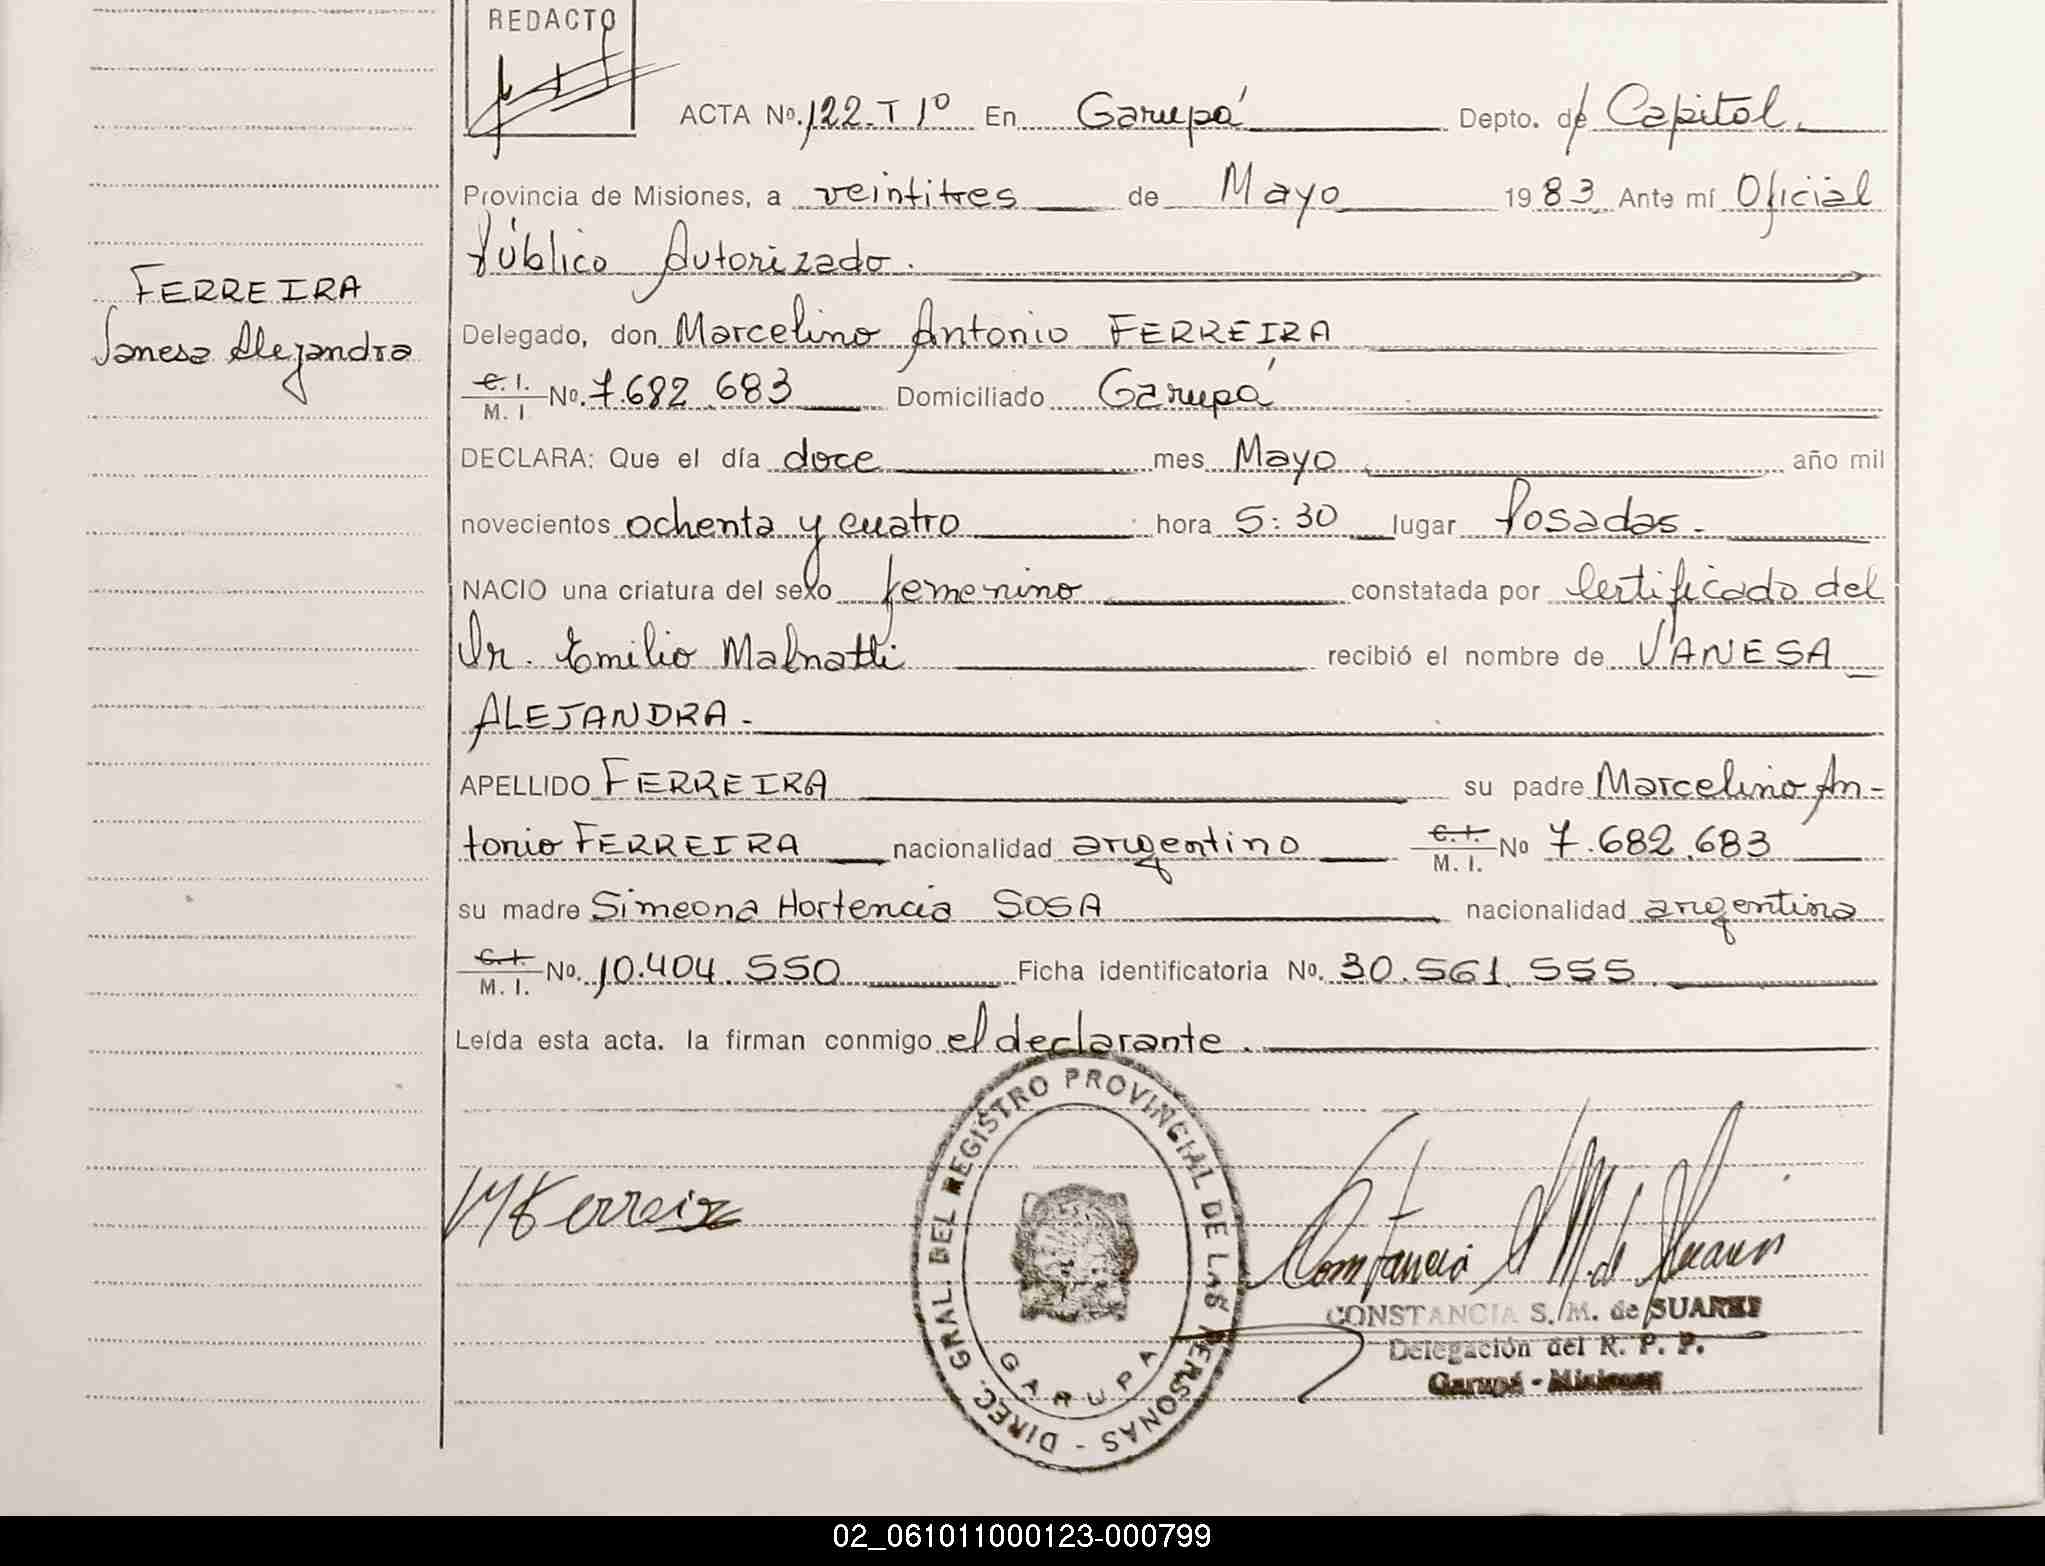 REDACTO
ACTA Nº. 122. T 1º En Garupá Depto. de Capital.
Provincia de Misiones, a veintitres de Mayo 1983 Ante mí Oficial
Público Autorizado.
FERREIRA
Vanesa Alejandra
Delegado, don Marcelino Antonio FERREIRA
C. I. M. I. Nº. 7.682.683 Domiciliado Garupá
DECLARA: Que el día doce mes Mayo año mil
novecientos ochenta y cuatro hora 5:30 lugar Posadas.
NACIO una criatura del sexo femenino constatada por Certificado del
Dr. Emilio Malnatti recibió el nombre de VANESA
ALEJANDRA.
APELLIDO FERREIRA su padre Marcelino An-
tonio FERREIRA nacionalidad argentino C. I. M. I. Nº 7.682.683
su madre Simeona Hortencia SOSA nacionalidad argentina
C. I. M. I. Nº. 10.404.550 Ficha identificatoria Nº. 30.561.555
Leída esta acta. la firman conmigo el declarante.
DIREC. GRAL. DEL REGISTRO PROVINCIAL DE LAS PERSONAS -
GARUPA
M Ferreira
Constancia S M. de Suarez
CONSTANCIA S. M. de SUAREZ
Delegación del R. P. P.
Garupá - Misiones
02_061011000123-000799